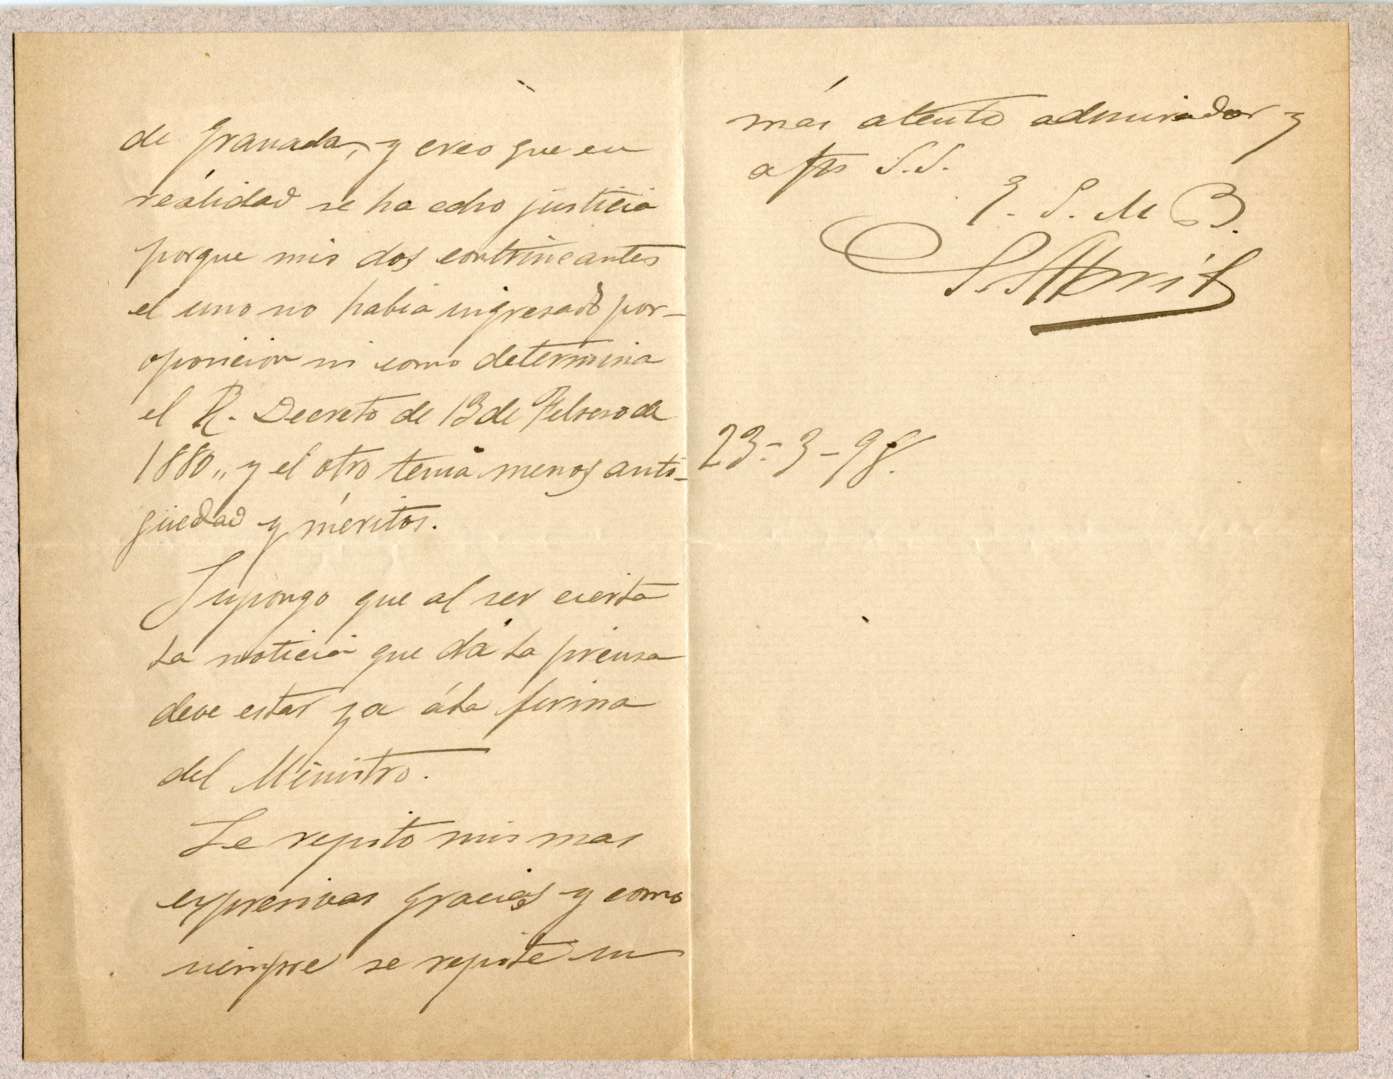 de Granada, y creo que en
reálidad se ha echo justicia
porque mis dos contrincantes
el uno no habia ingresado por-
oposicion ni como determina
el R. Decreto de 13 de Febrero de
1880,, y el otro tenia menos anti-
güedad y méritos.
Supongo que al ser cierta
la noticia que dá la prensa
deve estar ya á la firma
del Ministro.
Le repito mis mas
expresivas gracias y como
siempre se repite su
más atento admirador y
afto S.S.
Q. S. M B.
S. Abril
23-3-98.